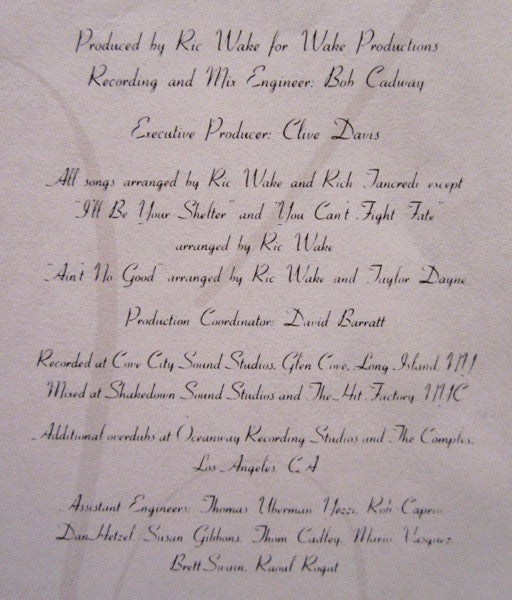 Produced by Ric Wake for Wake Productions
Recording and Mix Engineer: Bob Cadway
Executive Producer: Clive Davis
All songs arranged by Ric Wake and Rich Tancredi except
"I'll Be Your Shelter" and "You Can't Fight Fate"
arranged by Ric Wake
"Ain't No Good" arranged by Ric Wake and Taylor Dayne
Production Coordinator: David Barratt
Recorded at Cove City Sound Studios, Glen Cove, Long Island, NY
Mixed at Shakedown Sound Studios and The Hit Factory, NYC
Additional overdubs at Oceanway Recording Studios and The Complex,
Los Angeles, CA
Assistant Engineers: Thomas Uberman Yezzi, Rob Caprio,
Dan Hetzel, Susan Gibbons, Thom Cadley, Mario Vasquez,
Brett Swain, Raoul Rogut